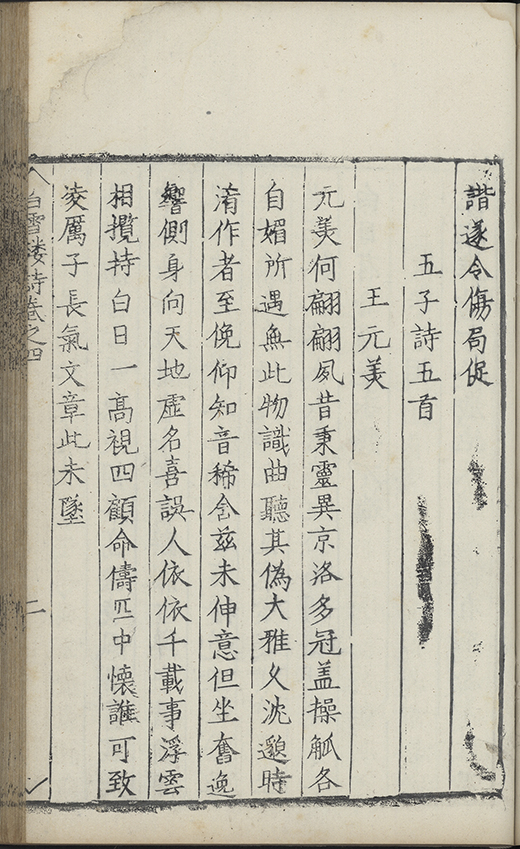 諧遂令傷局促
五子詩五首
王元美
元美何翩翩夙昔秉靈異京洛多冠盖操觚各
自媚所遇無此物識曲聽其偽大雅久沈邈時
淆作者至俛仰知音稀含兹未伸意但坐奮逸
響側身向天地虛名喜誤人依依千載事浮雲
相攬持白日一高視四顧命儔匹中懷誰可致
凌厲子長氣文章此未墜
白雪楼詩卷之四
二